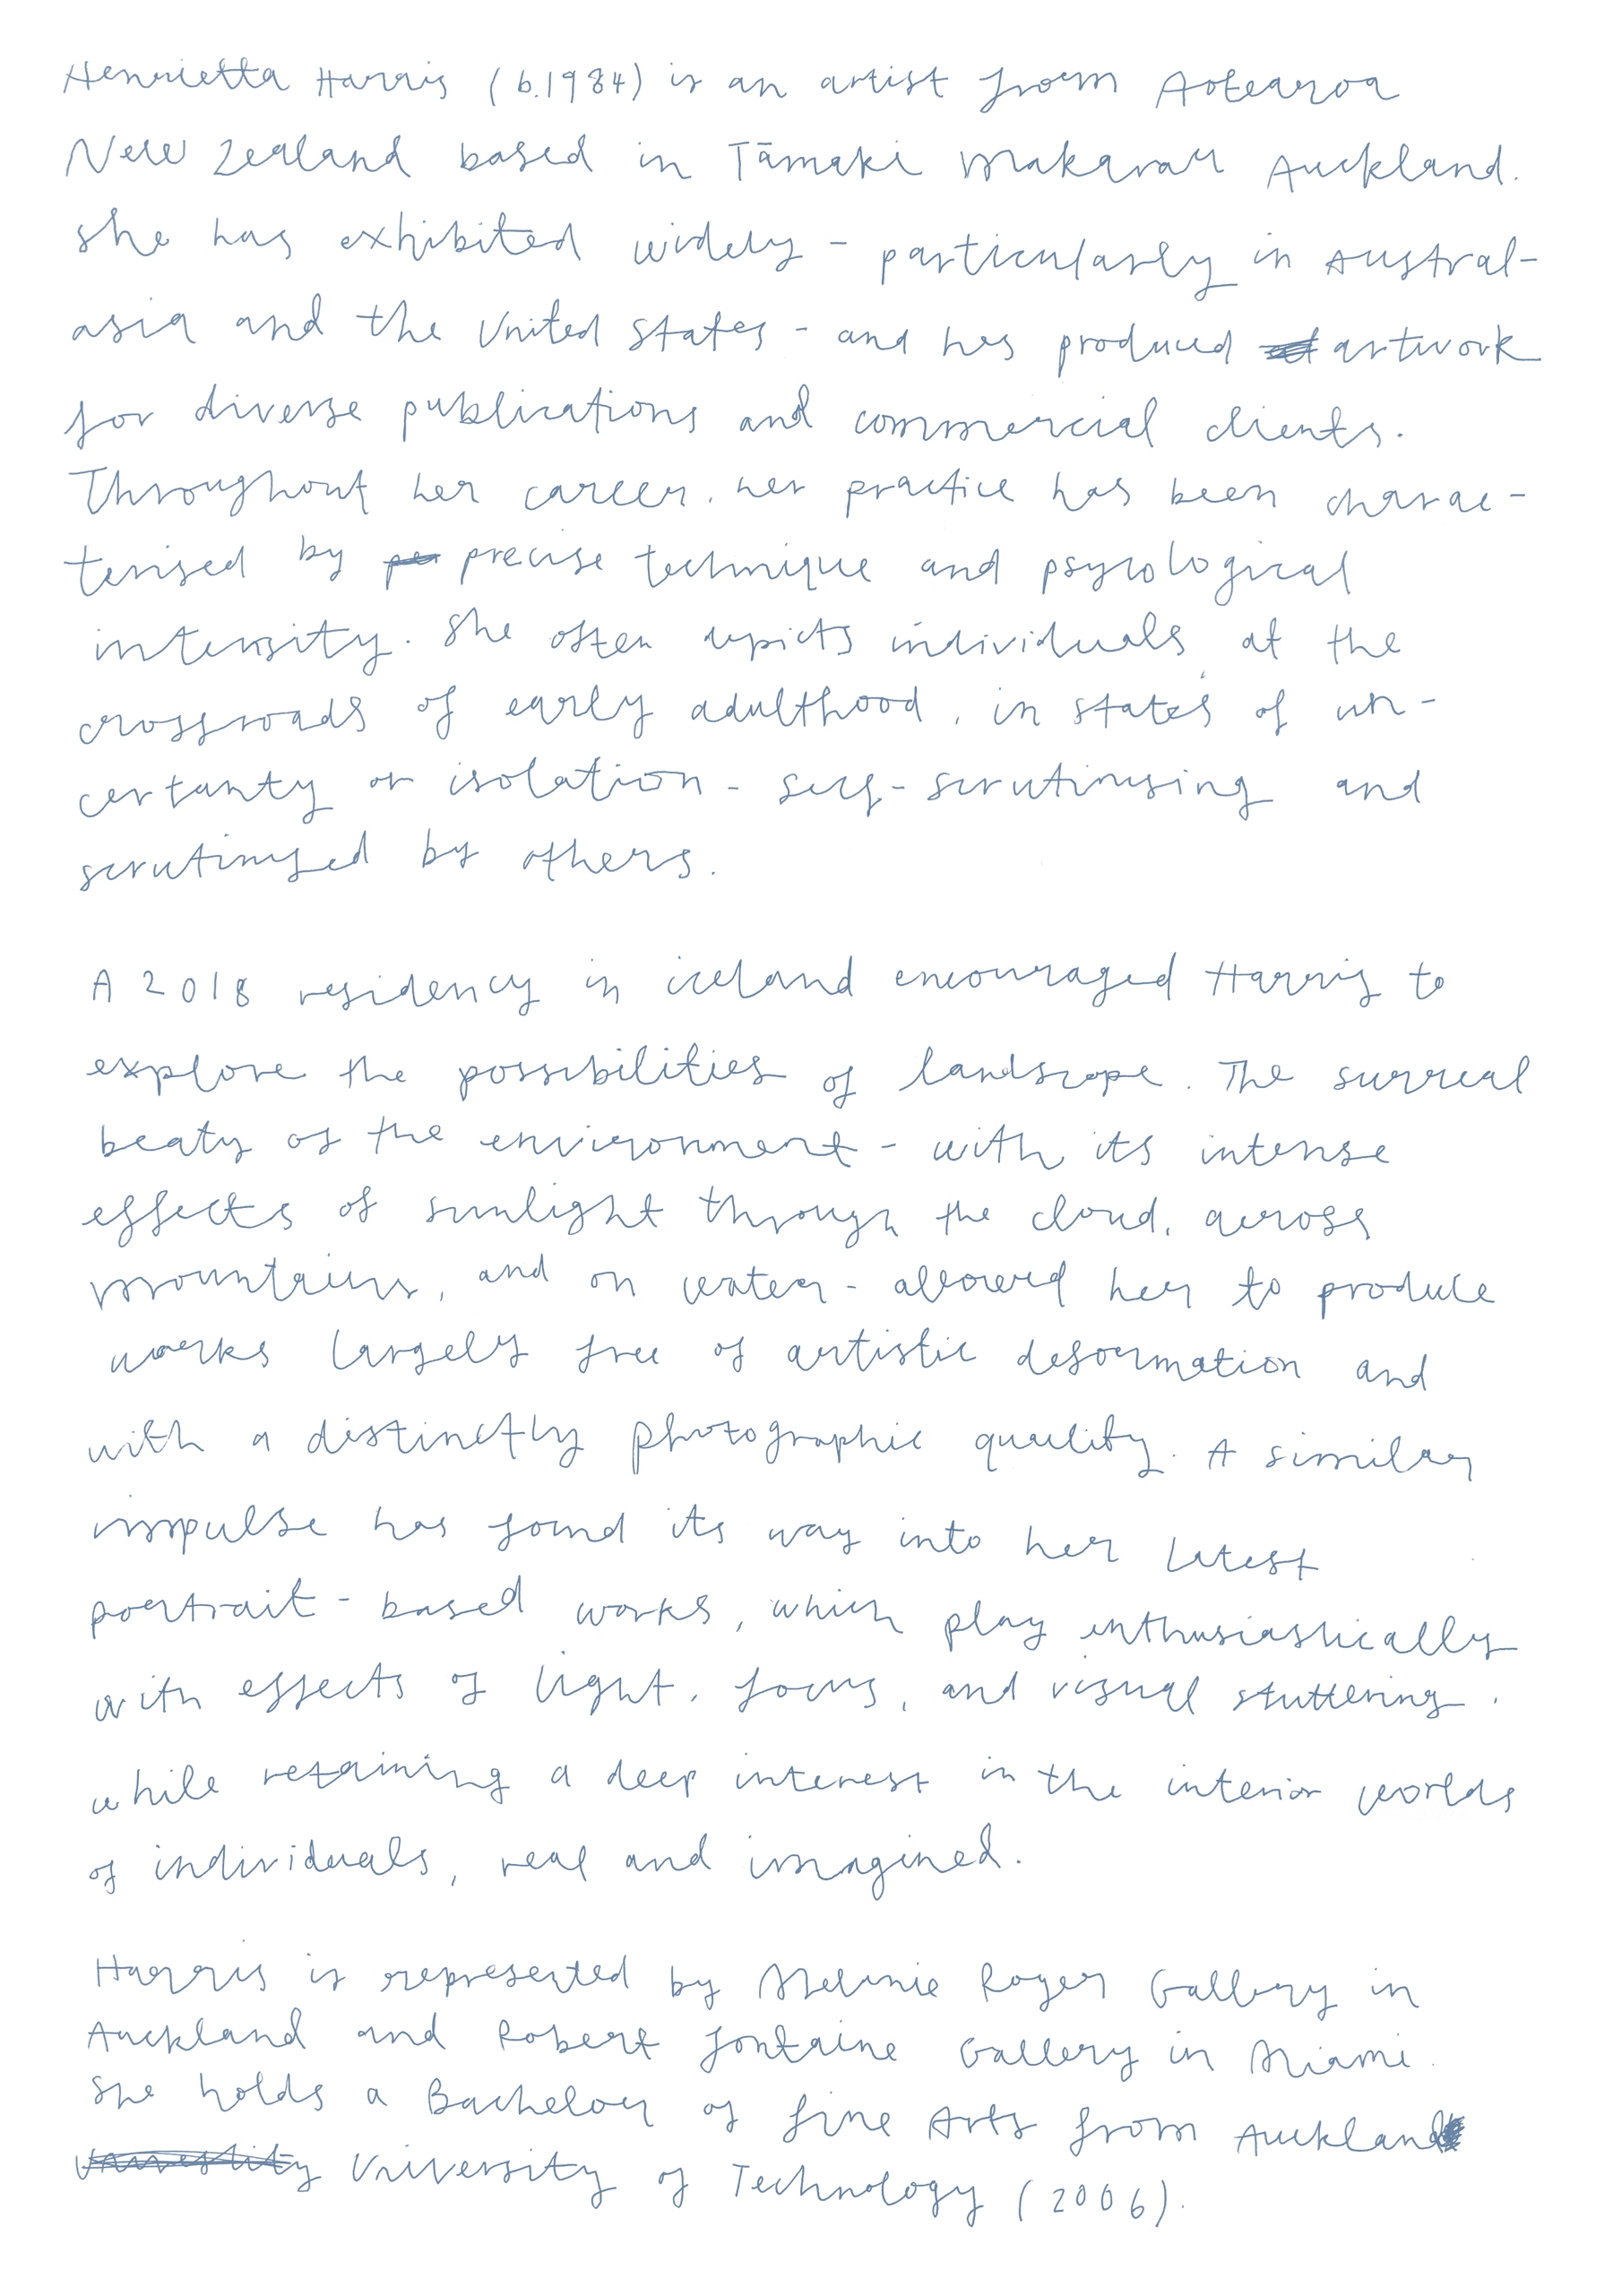 Henrietta Harris (b.1984) is an artist from Aotearoa
New Zealand based in Tāmaki Makarau Auckland.
She has exhibited widely - particularly in Austral-
asia and the United States - and has produced artwork
for diverse publications and commercial clients.
Throughout her career, her practice has been charac-
terised by precise technique and psycological
intensity. She often depicts individuals at the
crossroads of early adulthood, in states of un-
certanty or isolation - self-scrutinising and
scrutinised by others.
A 2018 residency in iceland encouraged Harris to
explore the possibilities of landscape. The surreal
beaty of the environment - with its intense
effects of sunlight through the cloud, across
mountains, and on water - allowed her to produce
works largely free of artistic deformation and
with a distinctly photographic quality. A similar
impulse has found its way into her latest
portrait-based works, which play enthusiastically
with effects of light, focus, and visual stuttering.
while retaining a deep interest in the interior worlds
of individuals, real and imagined.
Harris is represented by Melanie Roger Gallery in
Auckland and Robert Fontaine Gallery in Miami.
She holds a Bachelor of Fine Arts from Auckland
University of Technology (2006).